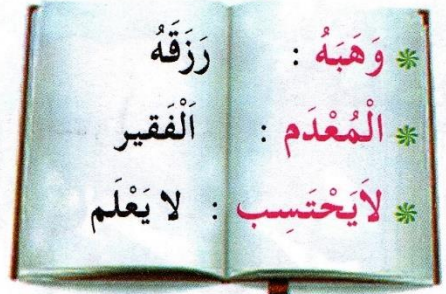 وَهَبَهُ : رَزَقَهُ
الْمُعْدَم : اَلْفَقير
لاَيَحْتَسِب : لا يَعْلَم